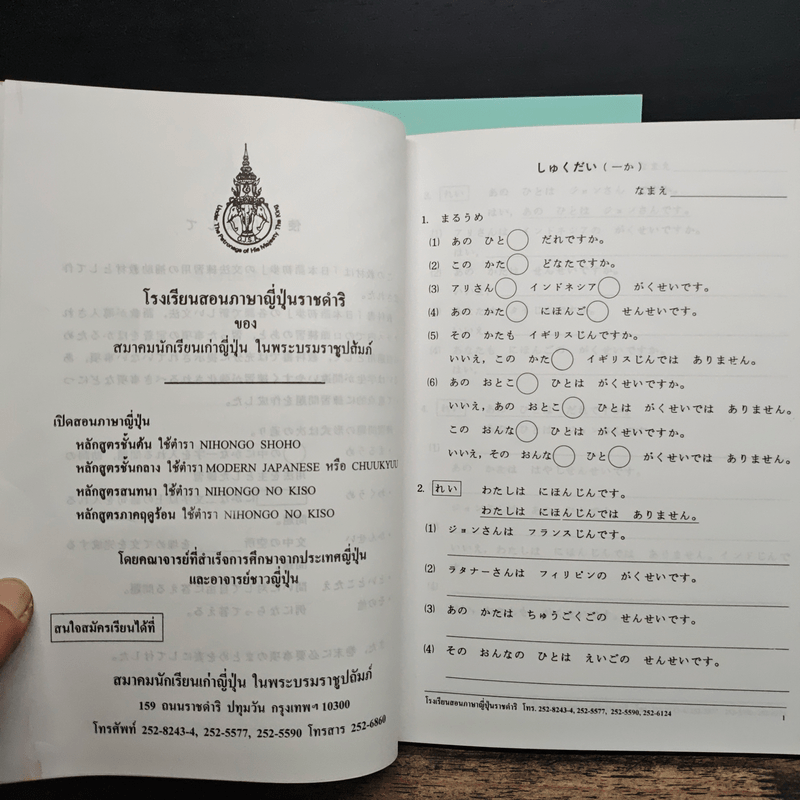 Under The Patronage of His Majesty The King
O.J.S.A.
โรงเรียนสอนภาษาญี่ปุ่นราชดำริ
ของ
สมาคมนักเรียนเก่าญี่ปุ่น ในพระบรมราชูปถัมภ์
เปิดสอนภาษาญี่ปุ่น
หลักสูตรชั้นต้น ใช้ตำรา NIHONGO SHOHO
หลักสูตรชั้นกลาง ใช้ตำรา MODERN JAPANESE หรือ CHUUKYUU
หลักสูตรสนทนา ใช้ตำรา NIHONGO NO KISO
หลักสูตรภาคฤดูร้อน ใช้ตำรา NIHONGO NO KISO
โดยคณาจารย์ที่สำเร็จการศึกษาจากประเทศญี่ปุ่น
และอาจารย์ชาวญี่ปุ่น
สนใจสมัครเรียนได้ที่
สมาคมนักเรียนเก่าญี่ปุ่น ในพระบรมราชูปถัมภ์
159 ถนนราชดำริ ปทุมวัน กรุงเทพฯ 10300
โทรศัพท์ 252-8243-4, 252-5577, 252-5590 โทรสาร 252-6860
しゅくだい (一か)
なまえ
1. まるうめ
(1) あの ひと○ だれですか。
(2) この かた○ どなたですか。
(3) アリさん○ インドネシア○ がくせいです。
(4) あの かた○ にほんご○ せんせいです。
(5) その かたも イギリスじんですか。
いいえ, この かた○ イギリスじんでは ありません。
(6) あの おとこ○ ひとは がくせいですか。
いいえ, あの おとこ○ ひとは がくせいでは ありません。
この おんな○ ひとは がくせいですか。
いいえ, その おんな○ ひと○ がくせいでは ありません。
2. れい わたしは にほんじんです。
わたしは にほんじんでは ありません。
(1) ジョンさんは フランスじんです。
(2) ラタナーさんは フィリピンの がくせいです。
(3) あの かたは ちゅうごくごの せんせいです。
(4) その おんなの ひとは えいごの せんせいです。
โรงเรียนสอนภาษาญี่ปุ่นราชดำริ โทร. 252-8243-4, 252-5577, 252-5590, 252-6124
1